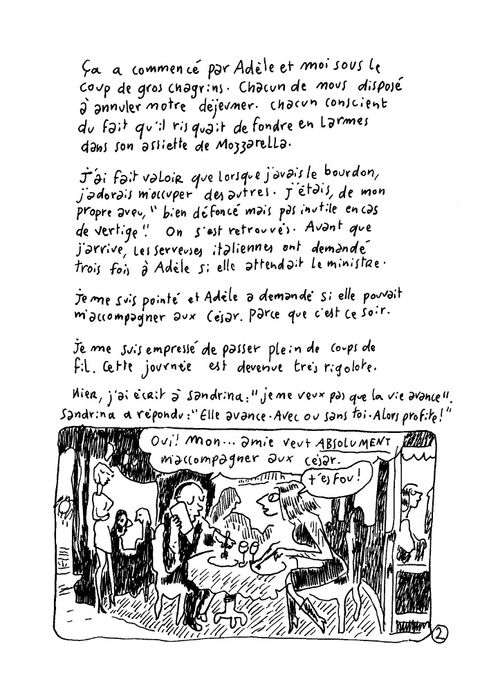 Ça a commencé par Adèle et moi sous le
coup de gros chagrins. Chacun de nous disposé
à annuler notre déjeuner. Chacun conscient
du fait qu'il risquait de fondre en larmes
dans son assiette de Mozzarella.
J'ai fait valoir que lorsque j'avais le bourdon,
j'adorais m'occuper des autres. J'étais, de mon
propre aveu, "bien défoncé mais pas inutile en cas
de vertige". On s'est retrouvés. Avant que
j'arrive, les serveuses italiennes ont demandé
trois fois à Adèle si elle attendait le ministre.
Je me suis pointé et Adèle a demandé si elle pouvait
m'accompagner aux César. Parce que c'est ce soir.
Je me suis empressé de passer plein de coups de
fil. Cette journée est devenue très rigolote.
Hier, j'ai écrit à Sandrina: "je ne veux pas que la vie avance".
Sandrina a répondu: "Elle avance. Avec ou sans toi. Alors profite!"
Oui! Mon... amie veut ABSOLUMENT
m'accompagner aux césar.
t'es fou!
2